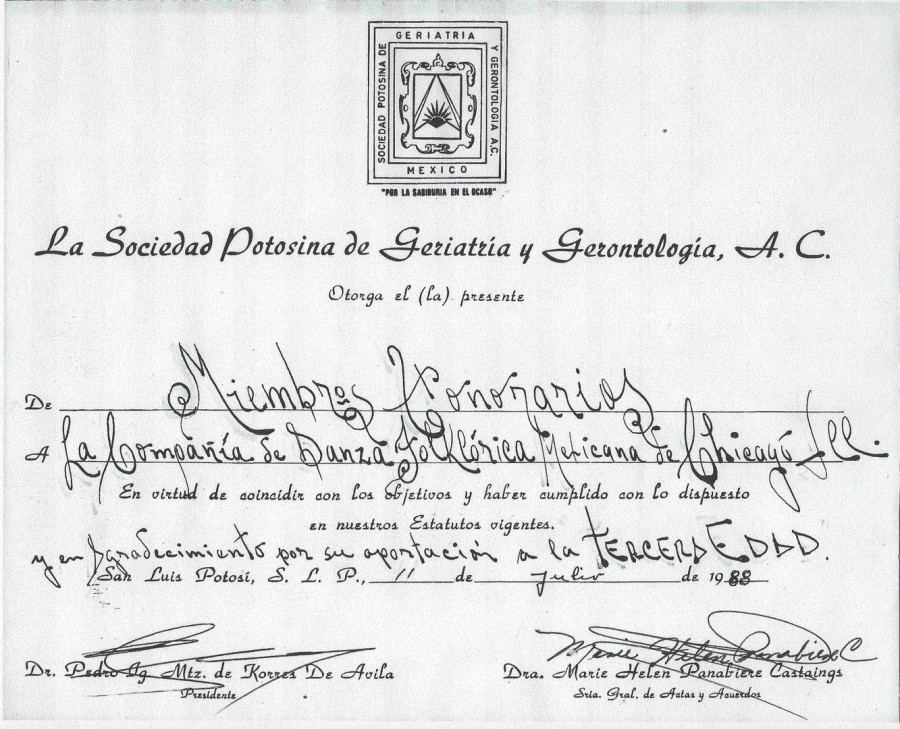 GERIATRIA
SOCIEDAD POTOSINA DE
Y GERONTOLOGIA A.C.
MEXICO
"POR LA SABIDURIA EN EL OCASO"
La Sociedad Potosina de Geriatría y Gerontología, A. C.
Otorga el (la) presente
De Miembros Honorarios
A La Compañía de Danza Folklórica Mexicana de Chicago Ill.
En virtud de coincidir con los objetivos y haber cumplido con lo dispuesto
en nuestros Estatutos vigentes.
y en agradecimiento por su aportación a la TERCERA EDAD.
San Luis Potosí, S. L. P., 11 de julio de 1988
Marie Helen Panabiere C
Dr. Pedro Ig. Mtz. de Korres De Avila
Dra. Marie Helen Panabiere Castaings
Presidente
Sria. Gral. de Actas y Acuerdos